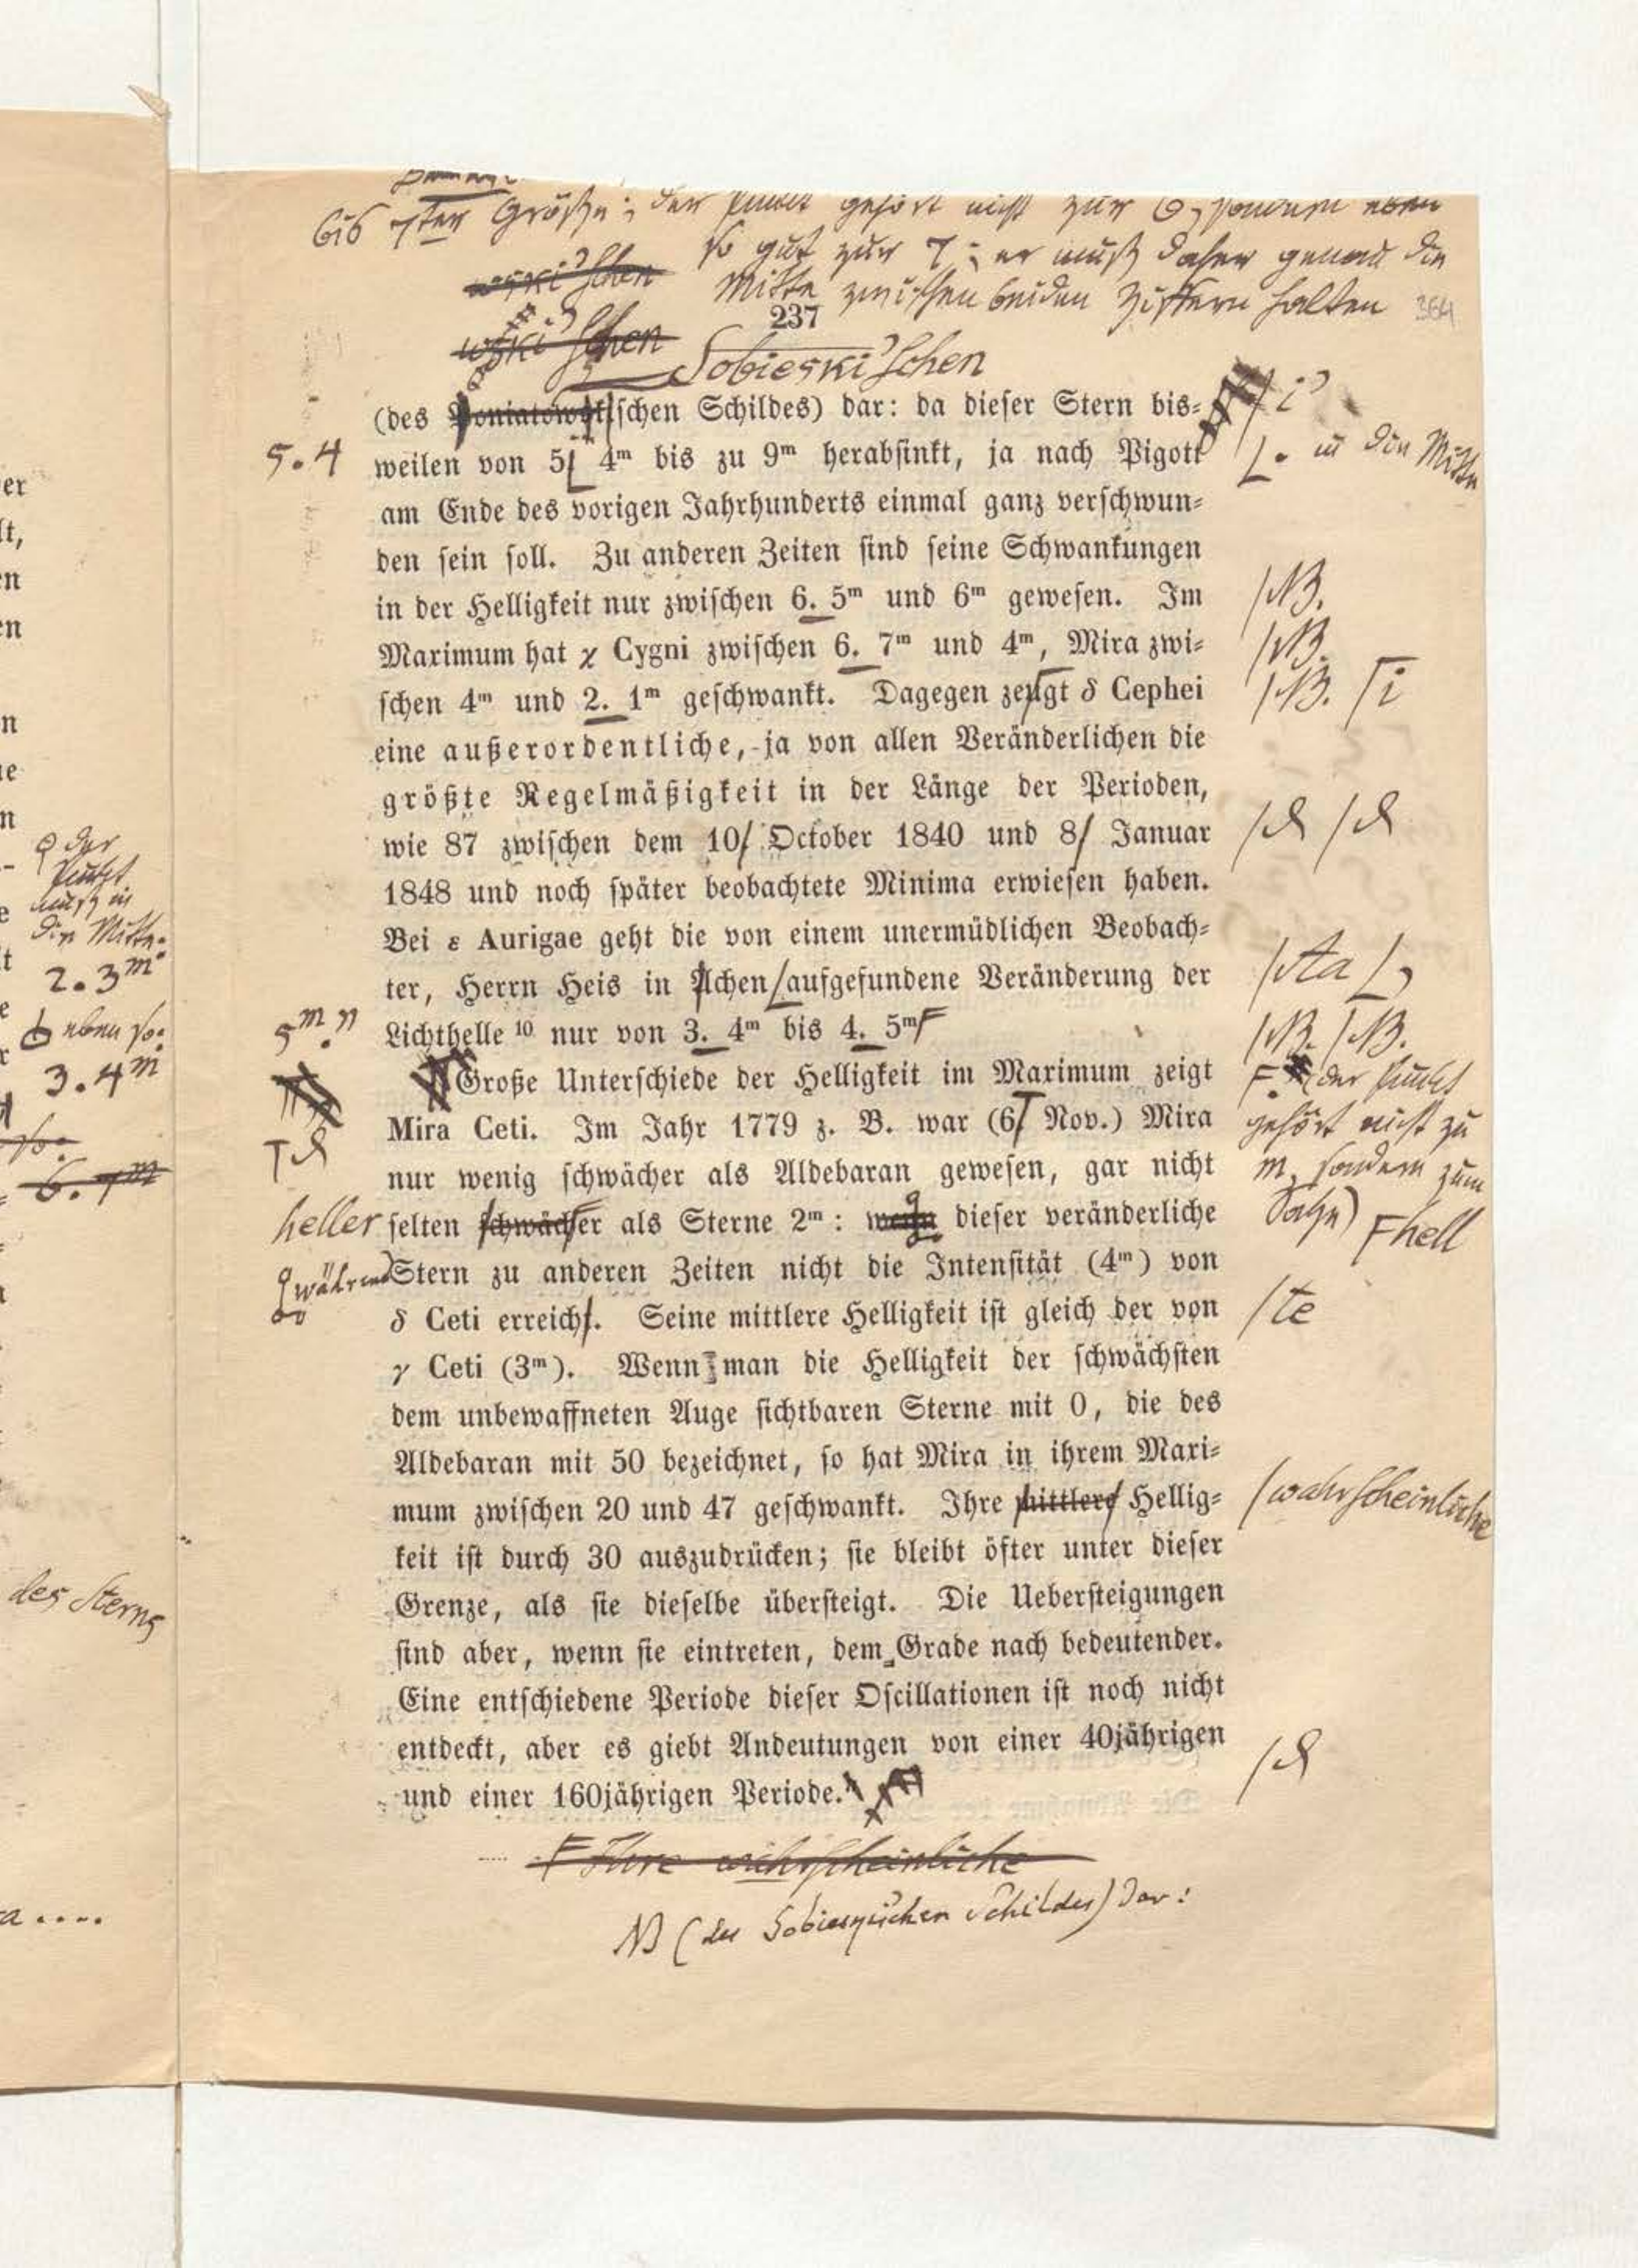 bis 7ter Größe; der Punkt gehört nicht zur 6, sondern eben
so gut zur 7; er muß daher genau die
wski'schen
Mitte zwischen beiden Ziffern halten
364
237
wski'schen
Sobieski'schen
(des Poniatowskischen Schildes) dar: da dieser Stern bis=
5.4
weilen von 5 4m bis zu 9m herabsinkt, ja nach Pigott
in die Mitte
am Ende des vorigen Jahrhunderts einmal ganz verschwun=
den sein soll. Zu anderen Zeiten sind seine Schwankungen
in der Helligkeit nur zwischen 6. 5m und 6m gewesen. Im
NB.
Maximum hat χ Cygni zwischen 6. 7m und 4m, Mira zwi=
NB.
schen 4m und 2. 1m geschwankt. Dagegen zeugt δ Cephei
NB. i
eine außerordentliche, ja von allen Veränderlichen die
größte Regelmäßigkeit in der Länge der Perioden,
wie 87 zwischen dem 10. October 1840 und 8. Januar
1848 und noch später beobachtete Minima erwiesen haben.
Bei ε Aurigae geht die von einem unermüdlichen Beobach=
ter, Herrn Heis in Achen aufgefundene Veränderung der
Aa ,
5m.
Lichthelle 10 nur von 3. 4m bis 4. 5m
NB. NB.
Große Unterschiede der Helligkeit im Maximum zeigt
(der Punkt
Mira Ceti. Im Jahr 1779 z. B. war (6 Nov.) Mira
gehört nicht zu
nur wenig schwächer als Aldebaran gewesen, gar nicht
m, sondern zum
heller
selten schwächer als Sterne 2m: wenn dieser veränderliche
Satze)
hell
während
Stern zu anderen Zeiten nicht die Intensität (4m) von
δ Ceti erreicht. Seine mittlere Helligkeit ist gleich der von
te
γ Ceti (3m). Wenn man die Helligkeit der schwächsten
dem unbewaffneten Auge sichtbaren Sterne mit 0, die des
Aldebaran mit 50 bezeichnet, so hat Mira in ihrem Maxi=
mum zwischen 20 und 47 geschwankt. Ihre mittlere Hellig=
wahrscheinliche
keit ist durch 30 auszudrücken; sie bleibt öfter unter dieser
Grenze, als sie dieselbe übersteigt. Die Uebersteigungen
sind aber, wenn sie eintreten, dem Grade nach bedeutender.
Eine entschiedene Periode dieser Oscillationen ist noch nicht
entdeckt, aber es giebt Andeutungen von einer 40jährigen
und einer 160jährigen Periode.
Ihre wahrscheinliche
NB (des Schildes) dar:
der
Punkt
muß in
die Mitte
2.3m
eben so:
3.4m
6.7m
des Sterns